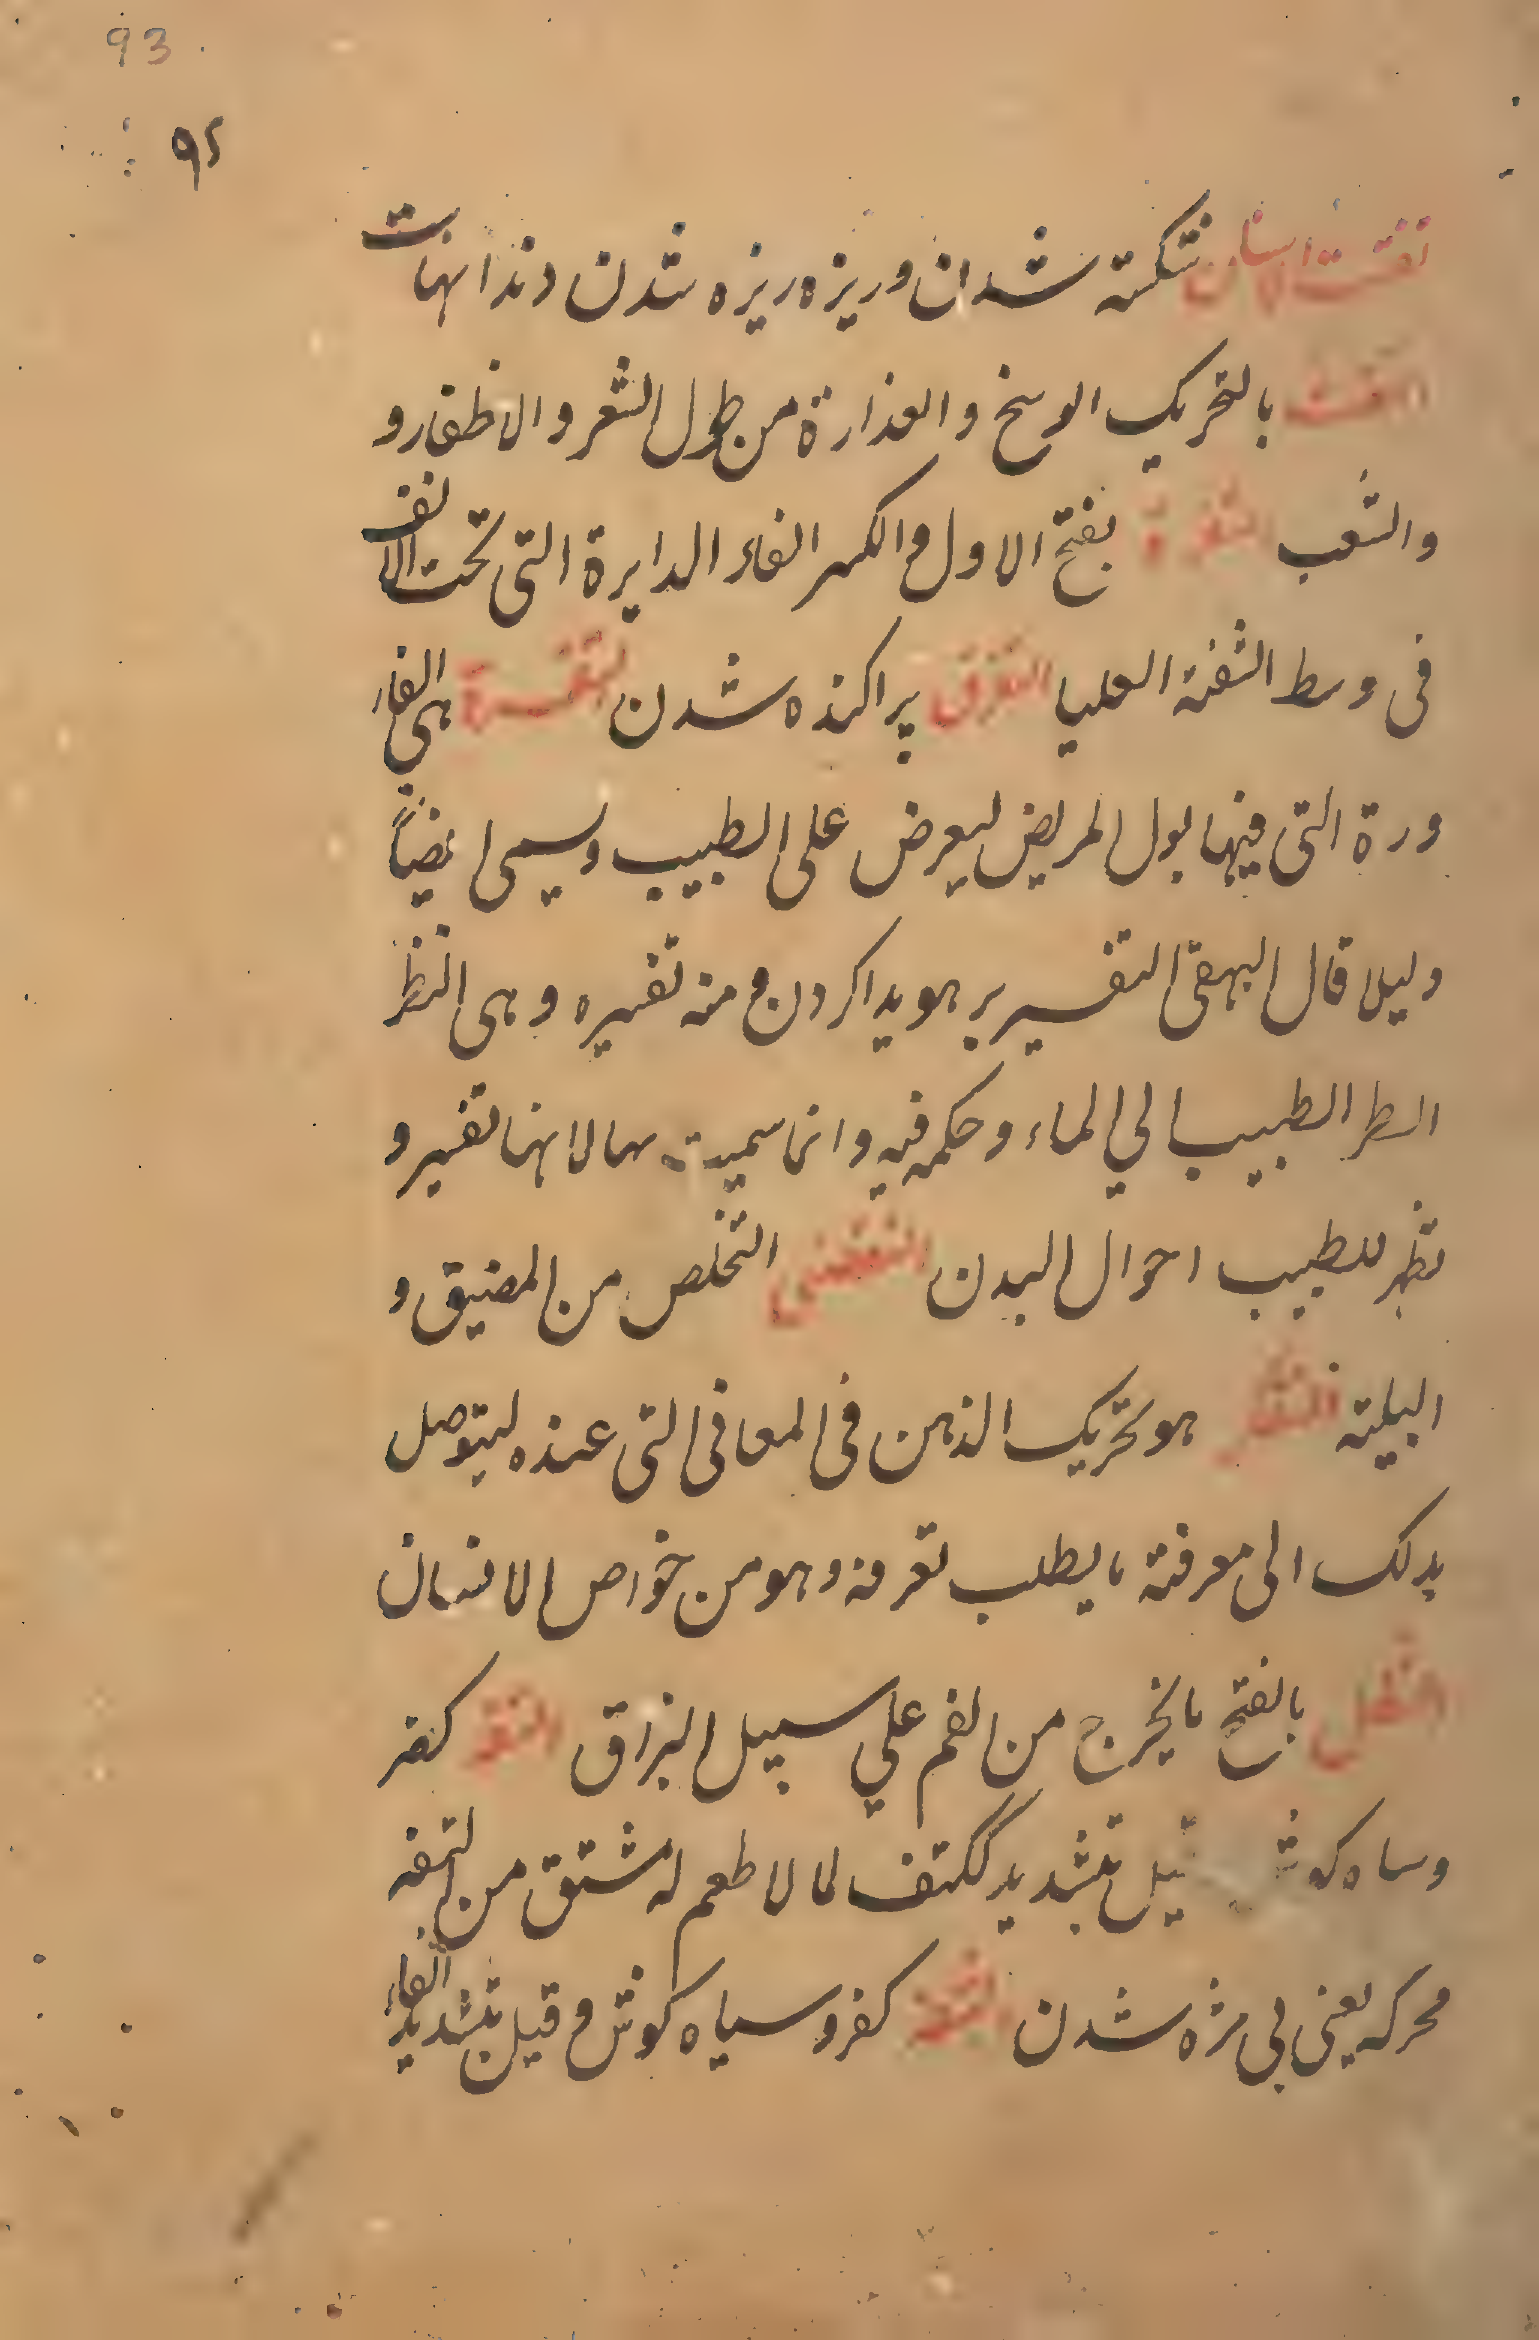 93
۹۲
تفتت الاسنان شکسته شدن و ریزه ریزه شدن دندانهاست
التفث بالتحریک الوسخ و القذارة من طول الشعر و الاظفار و
والشعب التفرة بفتح الاول و الکسر الفاء الدایرة التی تحت الانف
فی وسط الشفة العلیا التفرق پراکنده شدن التفسرة هی القار
ورة التی فیها بول المریض لیعرض علی الطبیب و یسمی ایضاً
دلیلا قال البیهقی التفسیر هویدا کردن و منه تفسیره و هی النظر
الطبیب الی الماء و حکمه فیه و انما سمیت بها لانها تفسیر و
تظهر للطبیب احوال البدن التفصی التخلص من المضیق و
البلیته التفکر هو تحریک الذهن فی المعانی التی عنده لیتوصل
بذلک الی معرفة ما یطلب تعرفه و هو من خواص الانسان
التفل بالفتح ما یخرج من الفم علی سبیل البزاق التفه کفتر
و ساه کوش قیل بتشدید ککتف لما لا طعم له مشتق من التفه
محرکه یعنی بی مزه شدن التفه کفر و سیاه کوش و قیل بتشدید الفاء